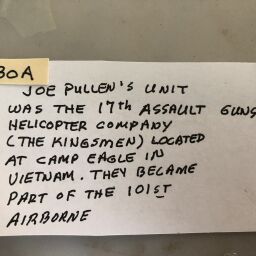 30A
JOE PULLEN'S UNIT
WAS THE 17th ASSAULT GUNS
HELICOPTER COMPANY
(THE KINGSMEN) LOCATED
AT CAMP EAGLE IN
VIETNAM. THEY BECAME
PART OF THE 101ST
AIRBORNE